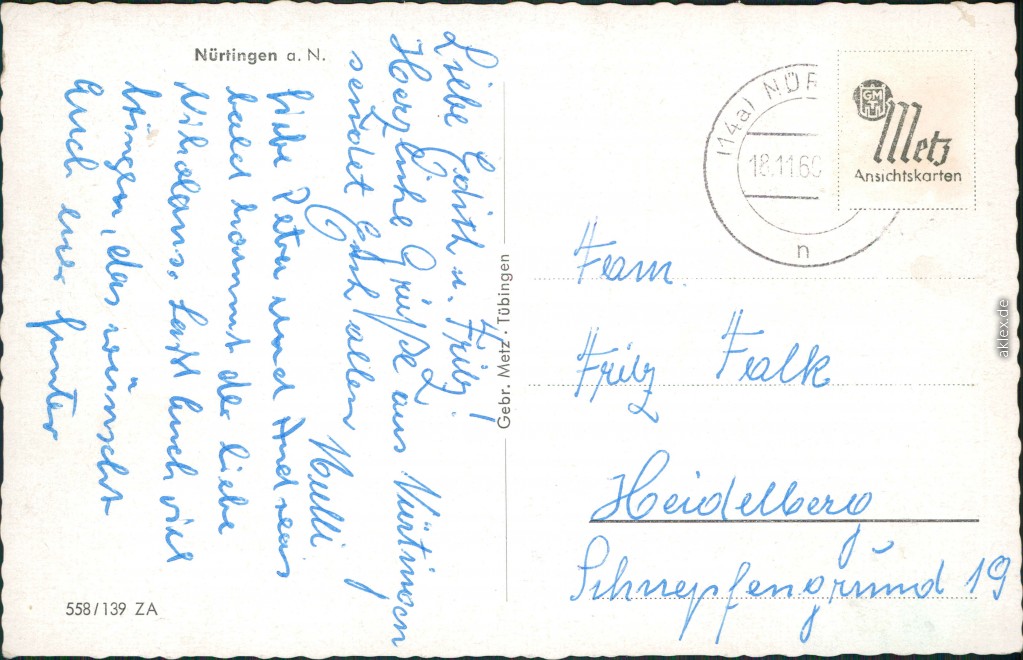 Nürtingen a. N.
Liebe Edith u. Fritz!
Herzliche Grüße aus Nürtingen
sendet Euch allen Mutti
Liebe Petra und Andreas
bald kommt der liebe
Nikolaus. Lasst Euch viel
bringen, das wünscht
Euch euer Gunter
558/139 ZA
Gebr. Metz · Tübingen
(14a) NÜR
18.11.60
n
GMT
Metz
Ansichtskarten
Fam.
Fritz Falk
Heidelberg
Schnepfengrund 19
aklex.de